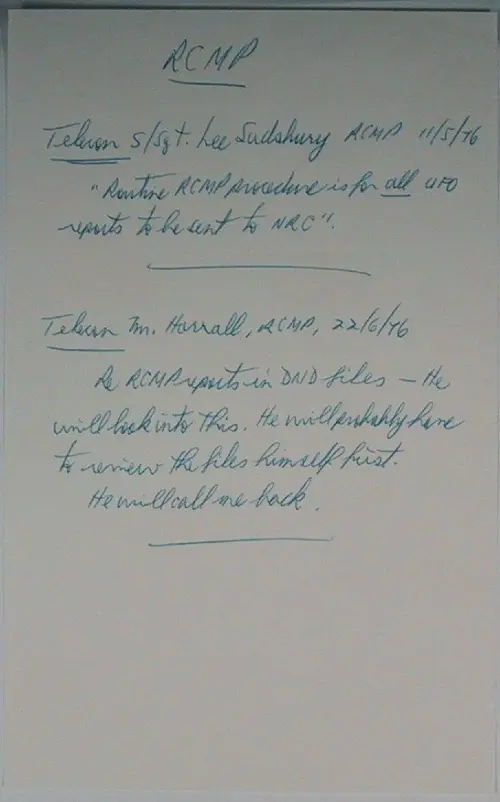 RCMP
Telecon S/Sgt. Lee Sudsbury RCMP 11/5/76
"Routine RCMP procedure is for all UFO
reports to be sent to NRC".
Telecon M. Horrall, RCMP, 22/6/76
Re RCMP reports in DND files — He
will look into this. He will probably have
to review the files himself first.
He will call me back.